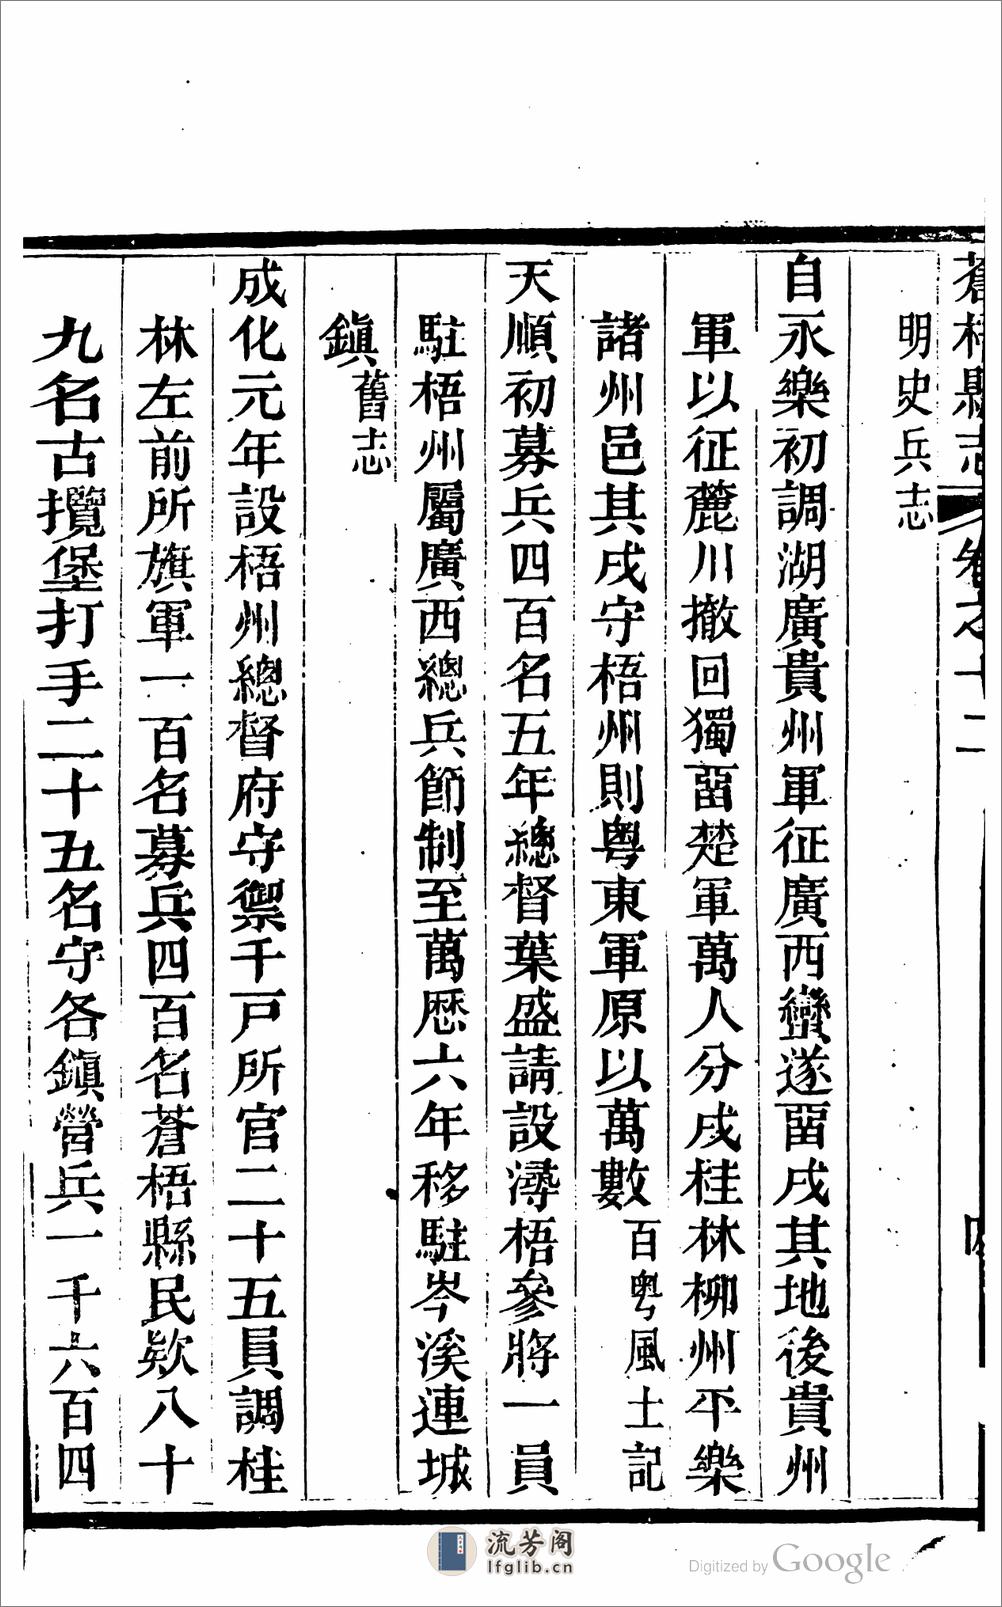 蒼梧縣志 卷之十二 四
明史兵志
自永樂初調湖廣貴州軍征廣西蠻遂畱戍其地後貴州
軍以征麓川撤回獨畱楚軍萬人分戍桂林柳州平樂
諸州邑其戍守梧州則粵東軍原以萬數百粵風土記
天順初募兵四百名五年總督葉盛請設潯梧參將一員
駐梧州屬廣西總兵節制至萬歷六年移駐岑溪連城
鎮舊志
成化元年設梧州總督府守禦千戸所官二十五員調桂
林左前所旗軍一百名募兵四百名蒼梧縣民欵八十
九名古攬堡打手二十五名守各鎮營兵一千六百四
流芳阁
lfglib.cn
Digitized by Google